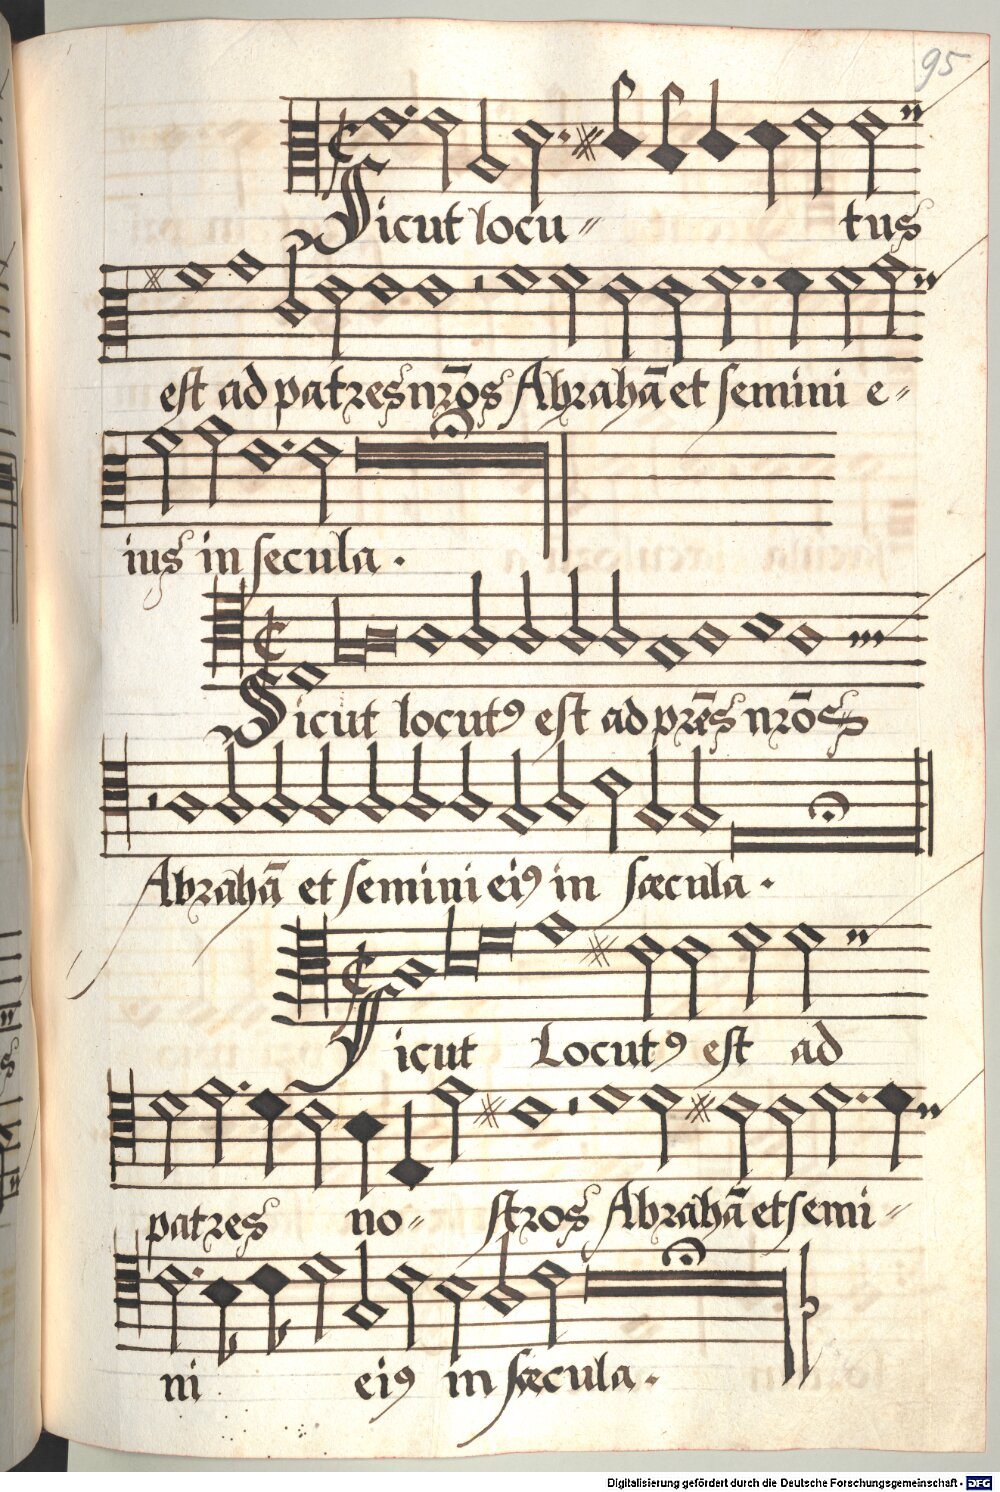 95
Sicut locu-tus
est ad patres nr̄os Abrahā et semini e-
ius in secula.
Sicut locutꝰ est ad pr̄es nr̄os
Abrahā et semini eiꝰ in sæcula.
Sicut Locutꝰ est ad
patres no-stros Abrahā et semi-
ni eiꝰ in sæcula.
Digitalisierung gefördert durch die Deutsche Forschungsgemeinschaft - DFG